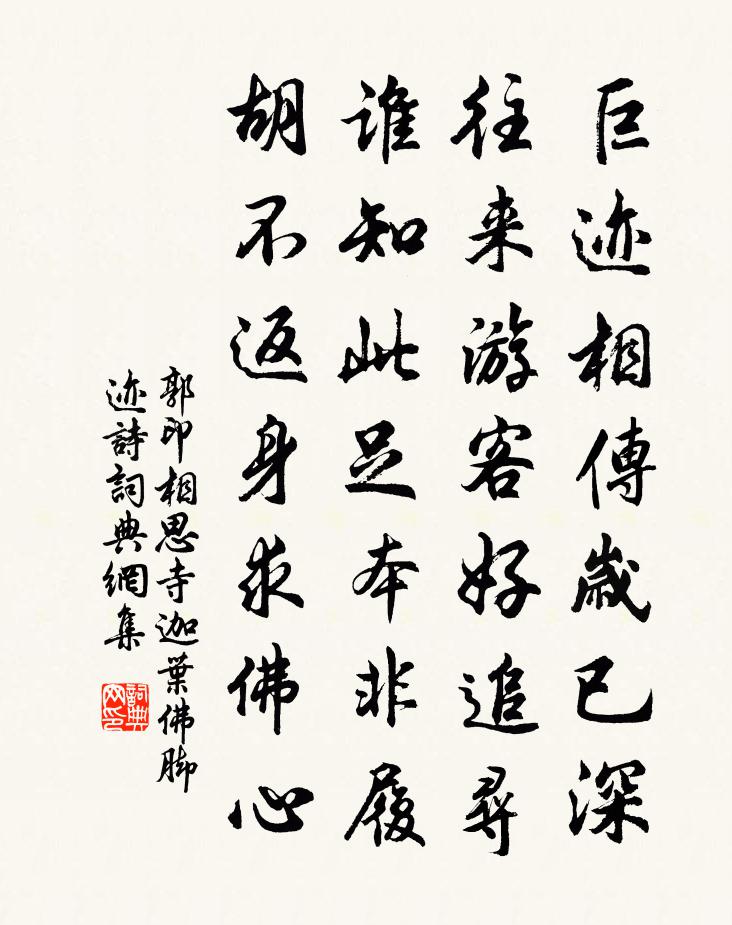 巨迹相傳歲已深
往来游客好追尋
誰知此足本非履
胡不返身求佛心
郭印相思寺迦葉佛脚
迹詩詞典網集
詞典
网印